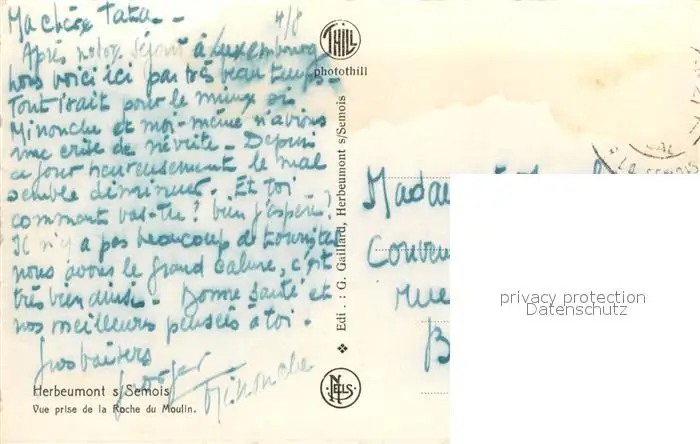 Ma chère Tata -
4/8
Après notre séjour à Luxembourg
nous voici ici par très beau temps -
Tout irait pour le mieux si
Minouche et moi-même n'avions
une crise de névrite - Depuis
ce jour heureusement le mal
semble diminuer. Et toi
comment vas-tu? bien j'espère?
Il n'y a pas beaucoup de touristes
nous avons le grand calme, c'est
très bien ainsi - Bonne santé et
nos meilleures pensées à toi -
Gros baisers
Minouche
Herbeumont s/Semois
Vue prise de la Roche du Moulin.
THILL
photothill
Edi . : G. Gaillard, Herbeumont s/Semois
NELS
LA SEMOIS
Mada
Couven
rue
B
privacy protection
Datenschutz